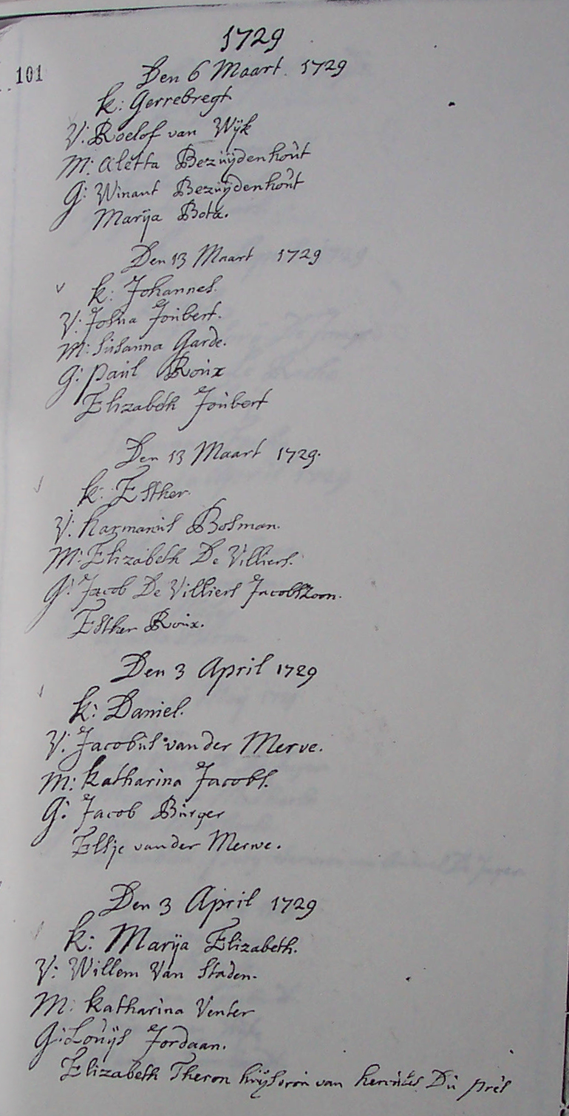 1729
101
Den 6 Maart. 1729
k: Gerrebregt
V: Roelof van Wijk
M: Aletta Bezuÿdenhout
G: Winant Bezuÿdenhout
Marÿa Bota.
Den 13 Maart 1729
k: Johannes.
V: Josua Joubert.
M: Susanna Garde.
G: Paul Roux
Elizabeth Joubert
Den 13 Maart 1729.
k: Esther
V: harmanus Bosman.
M: Elizabeth De Villiers.
G: Jacob De Villiers Jacobszoon.
Esther Roux.
Den 3 April 1729
k: Daniel.
V: Jacobus van der Merve.
M: katharina Jacobs.
G: Jacob Burger
Elsje van der Merwe.
Den 3 April 1729
k: Marÿa Elizabeth.
V: Willem Van Staden.
M: katharina Venter
G: Louÿs Jordaan.
Elizabeth Theron van Du